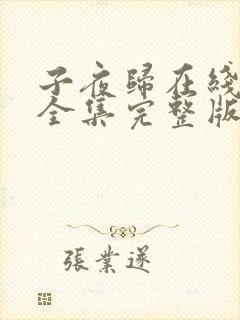 子夜歸在綫
全集完整版
張業遂